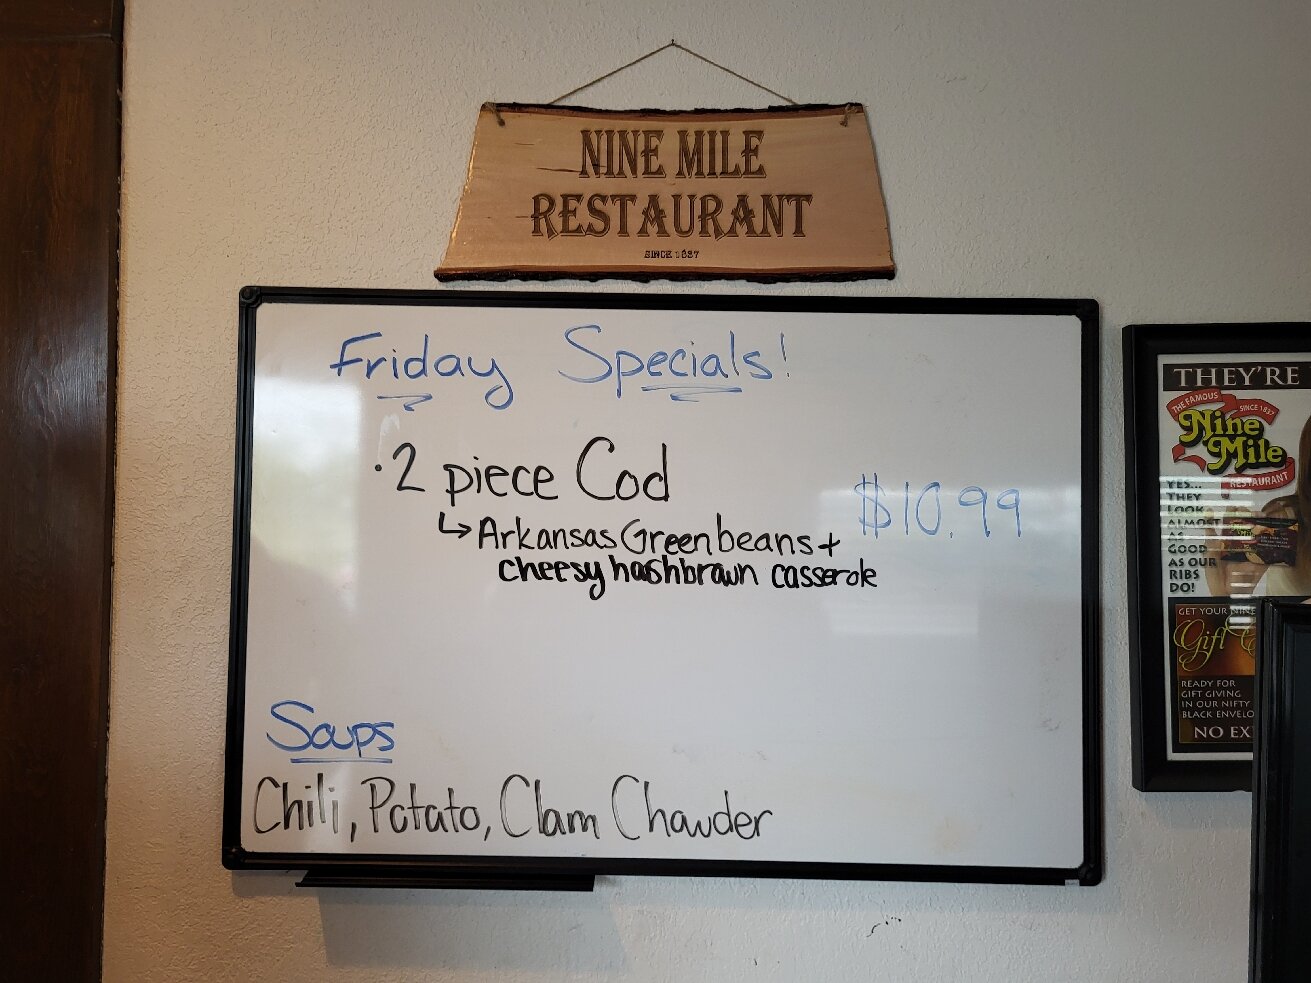 NINE MILE
RESTAURANT
SINCE 1837
Friday Specials!
· 2 piece Cod
$10.99
↳ Arkansas Green beans +
cheesy hashbrown casserole
Soups
Chili, Potato, Clam Chowder
THEY'RE
THE FAMOUS
SINCE 1837
Nine
Mile
RESTAURANT
YES...
THEY
LOOK
ALMOST
AS
GOOD
AS OUR
RIBS
DO!
GET YOUR NINE
Gift
READY FOR
GIFT GIVING
IN OUR NIFTY
BLACK ENVELO
NO EX